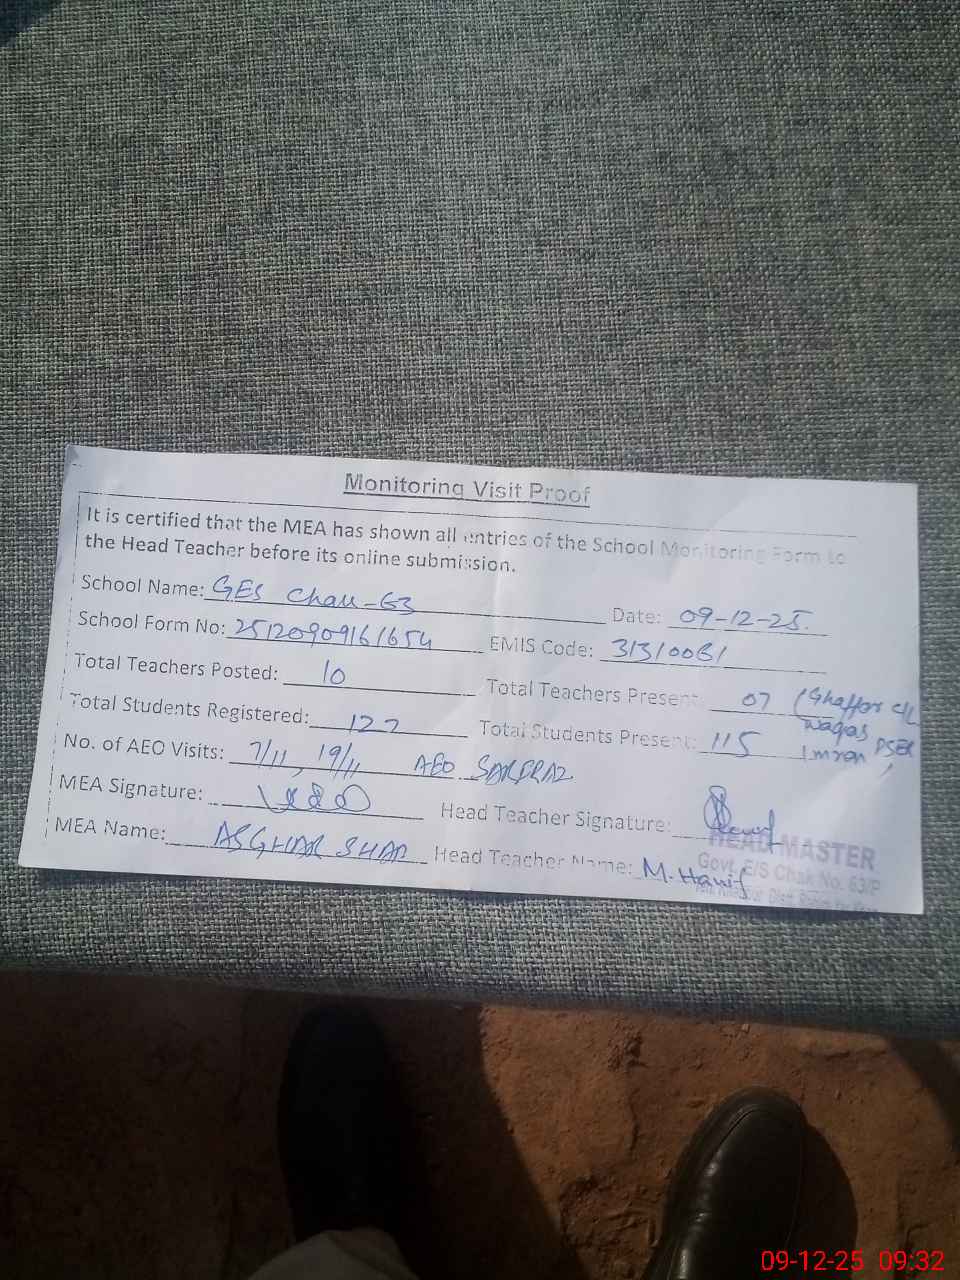 Monitoring Visit Proof
It is certified that the MEA has shown all entries of the School Monitoring Form to
the Head Teacher before its online submission.
School Name: GES Chak-63 Date: 09-12-25.
School Form No: 25120909161654 EMIS Code: 31310081
Total Teachers Posted: 10 Total Teachers Present: 07 (Ghaffar C/L
Waqas PSER
Imran ,
Total Students Registered: 122 Total Students Present: 115
No. of AEO Visits: 7/11, 19/11 AEO SARFRAZ
MEA Signature: Head Teacher Signature:
MEA Name: ASGHAR SHAD Head Teacher Name: M. Hanif
HEAD MASTER
Govt. E/S Chak No. 63/P
Distt. Rahim Yar Khan
09-12-25 09:32